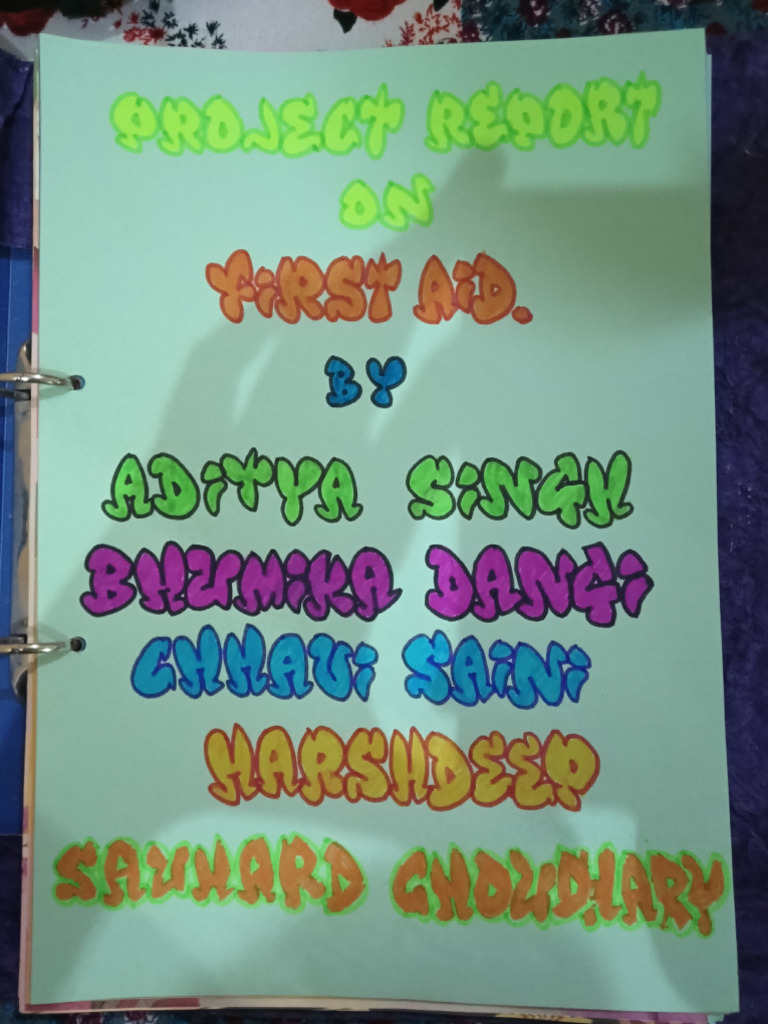 PROJECT REPORT
ON
FiRST AiD.
BY
ADiTYA SiNGH
BHUMiKA DANGi
CHHAVi SAiNi
HARSHDEEP
SAUHARD CHOUDHARY